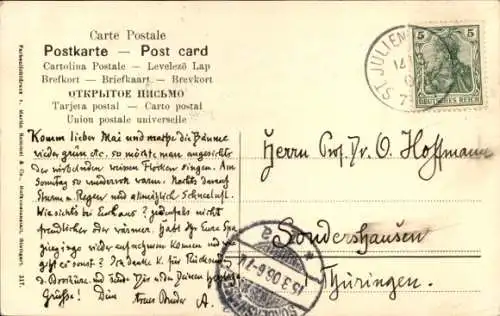 Carte Postale
Postkarte — Post card
Cartolina Postale — Levelező Lap
Brefkort — Briefkaart — Brevkort
ОТКРЫТОЕ ПИСЬМО
Tarjeta postal — Carto postal
Union postale universelle
Komm lieber Mai und mache die Bäume
wieder grün etc. so möchte man angesichts
der wirbelnden weissen Flocken singen. Am
Sonntag so wundervoll warm. Nachts darauf
Sturm u. Regen und allmählich Schneeluft.
Wie siehts bei Euch aus? jedenfalls nicht
freundlicher oder wärmer. Habt Ihr Eure Spa-
ziergänge wieder aufnehmen können und wie
geht es sonst? Ich danke K. für Rücksend.
d. Broschüre und sende Dir u. den Deinen herzliche
Grüsse! Dein treuer Bruder A.
Herrn Prof. Dr. O. Hoffmann
Sondershausen
Thüringen.
ST JULIEN
14
5 5
DEUTSCHES REICH
SONDERSHAUSEN
15.3.06. 6-7
a
317.